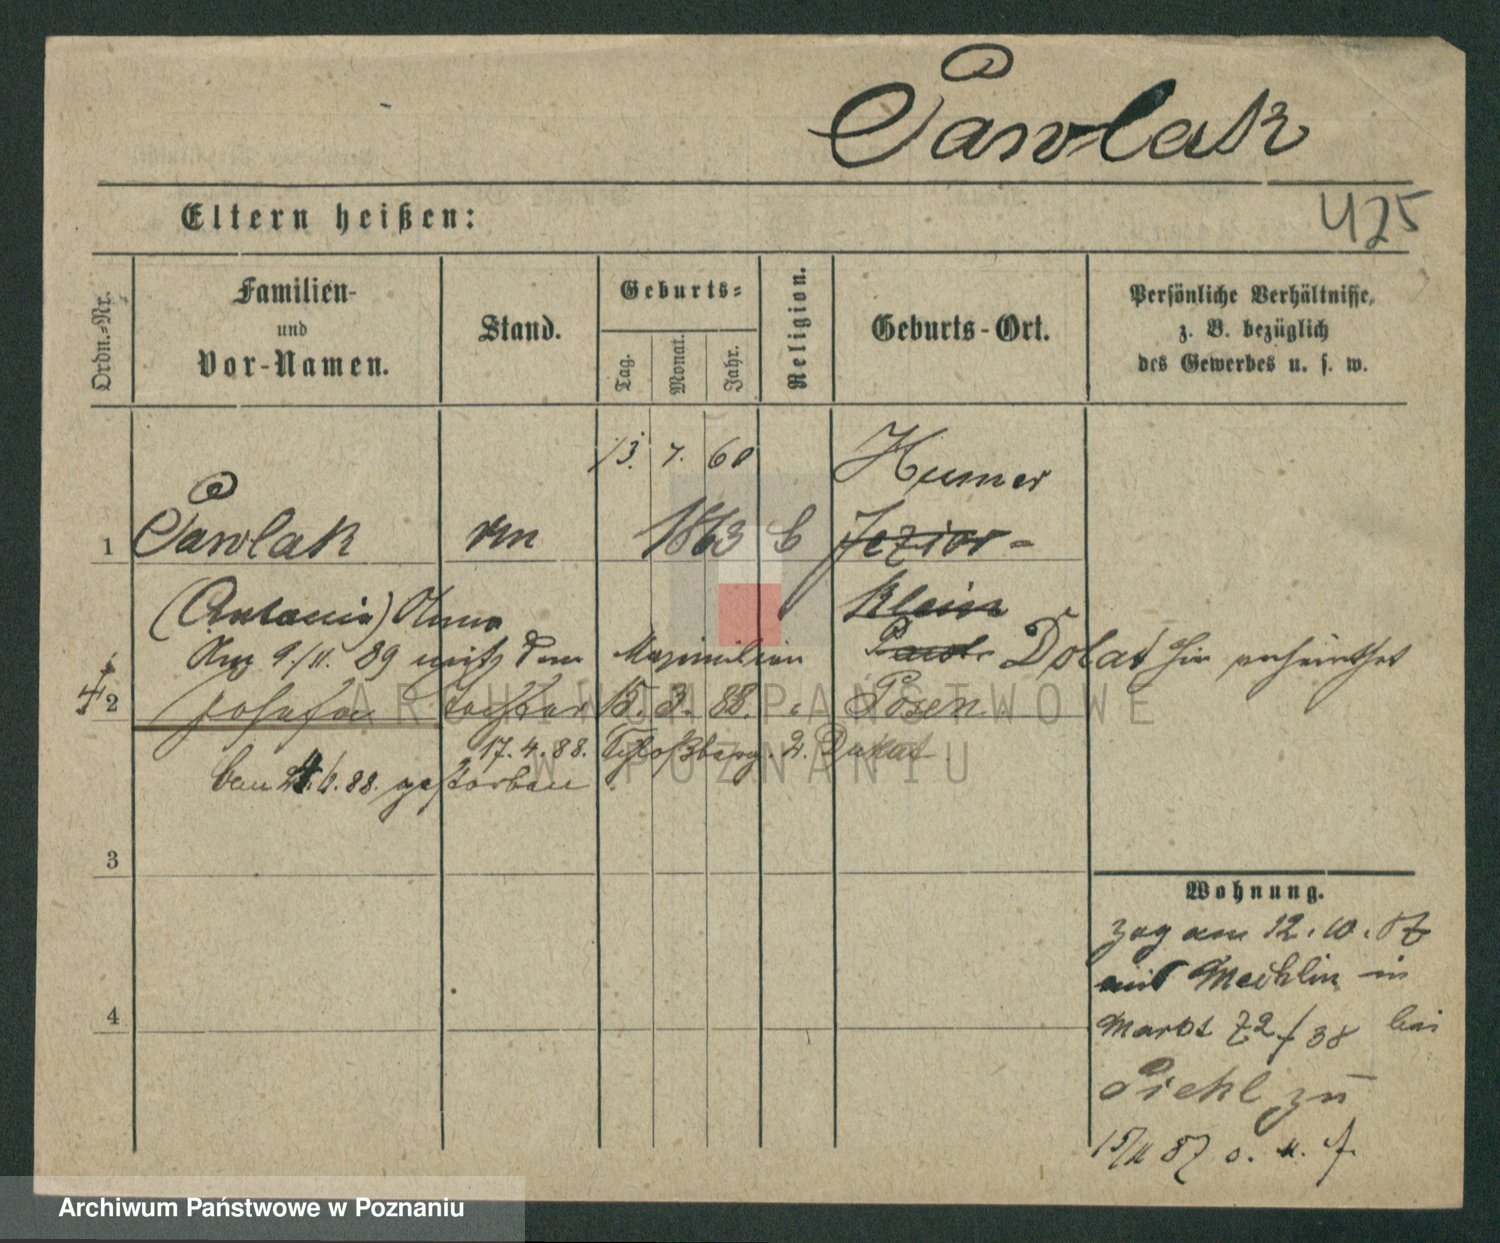 Pawlak
425
Eltern heißen:
Ordn.-Nr.
Familien-
und
Vor-Namen.
Stand.
Geburts-
Tag.
Monat.
Jahr.
Religion.
Geburts-Ort.
Persönliche Verhältnisse,
z. B. bezüglich
des Gewerbes u. s. w.
13. 7. 60 Humer
1 Pawlak 1863 Jezior-
klein
(Antonie)
Am 9/11. 89 mit dem Maximilian Dolat hier verheirathet
2 Josefa Tochter 15. 3. 88. Posen
17. 4. 88.
gestorben
3
4
Wohnung.
zog am 12. 10. 87
mit Mechlin in
Markt 72/38 bei
Piehl zu
15/11 87 o. u. f.
ARCHIWUM PAŃSTWOWE
W POZNANIU
Archiwum Państwowe w Poznaniu